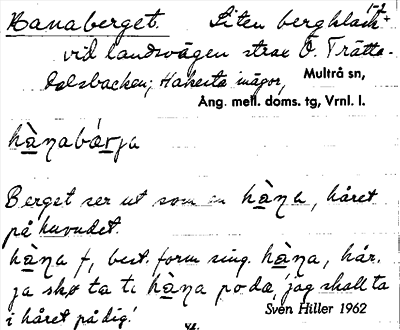 Hanaberget. Liten bergklack
vid landsvägen strax Ö. Trätta-
dalsbacken; Hakesta inägor, Multrå sn,
Ång. metl. doms. tg, Vrnl. l.
hànabárja
Berget ser ut som en hàna, håret
på huvudet.
hàna f, best. form sing. hàna, hår.
ja skø ta ti hàna po da, 'jag skall ta
i håret på dig'.
Sven Hiller 1962